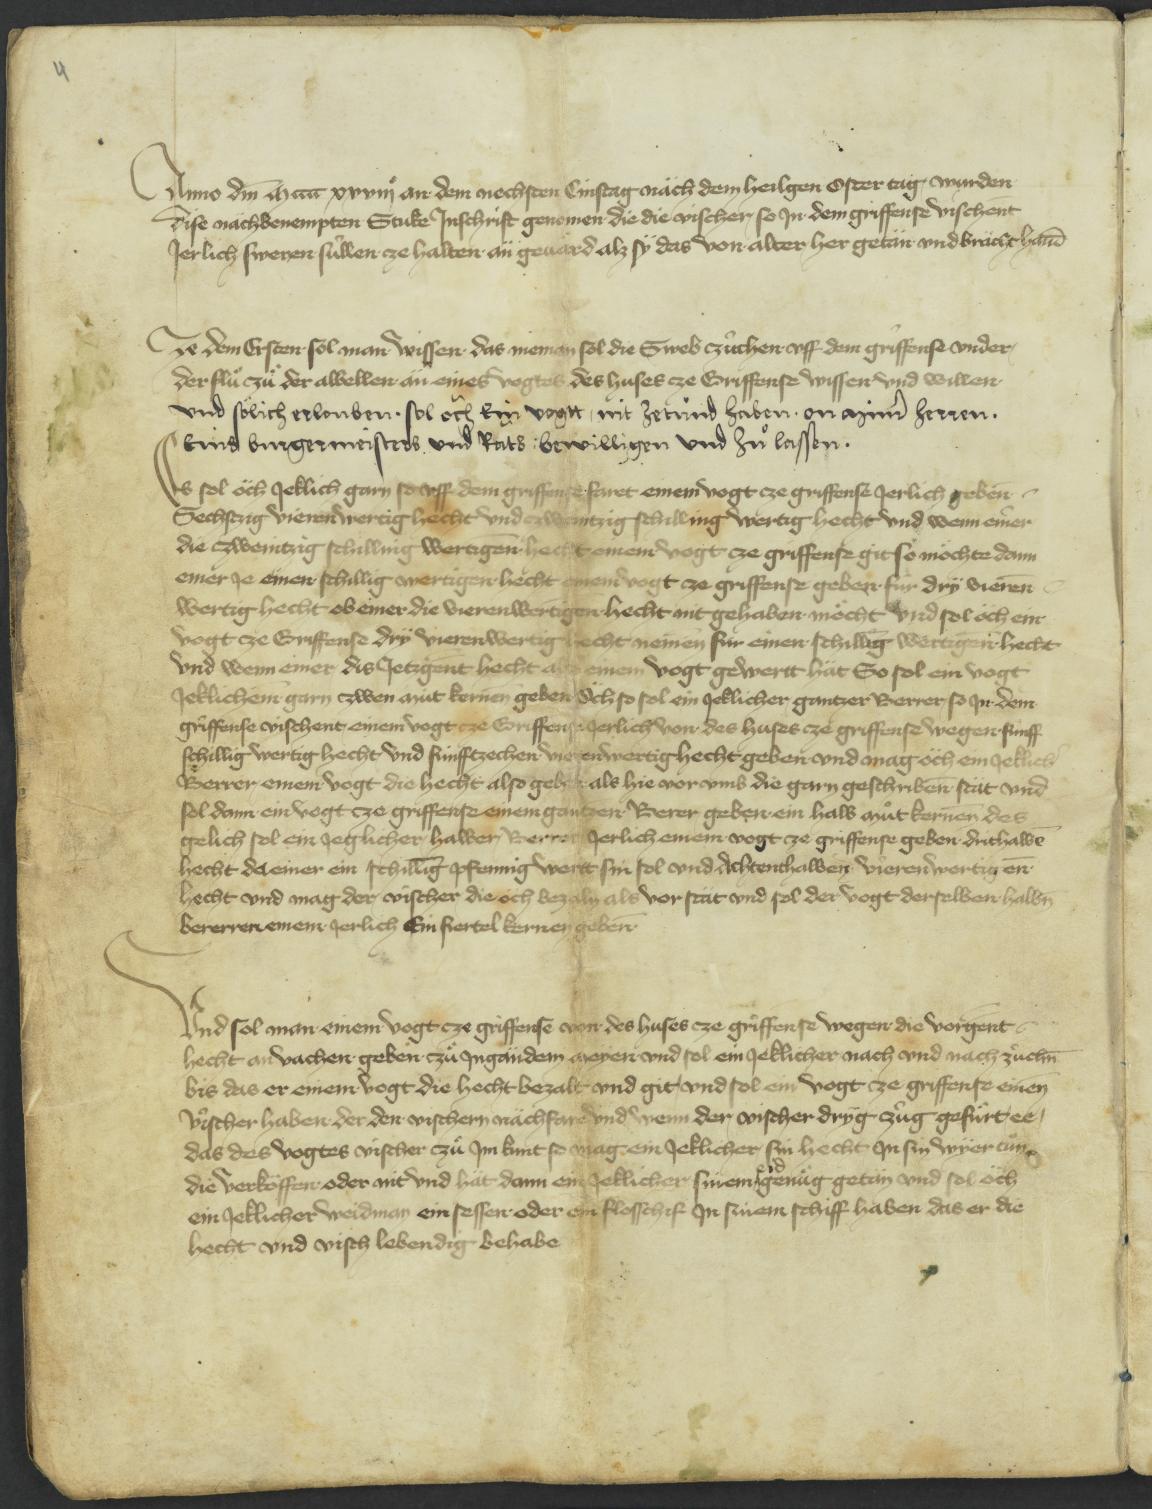 4
Anno dm̄ Mcccc xxviijͦ an dem nechsten Cinstag nách dem heilgen Oster tag wurden
dise nachbenempten Stuke In schrift genomen die die vischer so Jn dem griffense vischent
Jerlich sweren súllen cze halten án geuárd alz sÿ das von alter her getán vnd brácht hand
Ze dem Ersten sol man wissen das nieman sol die Sweb czúchen vff dem griffense vnder
der flů czů der albellen án eines vogtes des huses cze Griffense wissen vnd willen
vnd sólich erlouben sol óch kein vogtt nit ze túnd haben on miner herren
Eins burgermeisters vnd Rats bewilligen vnd zů lassen
Es sol óch Jeklich garn so vff dem griffense faret einem vogt cze griffense Jerlich geben
Sechszig vieren wertig hecht vnd czweintzig schilling wertig hecht vnd wenn einer
die czweintzig schilling wertigen hecht einem vogt cze griffense git so móchte dann
einer Je einen schillig wertigen hecht einem vogt ze griffense geben fúr drÿ vieren
wertig hecht ob einer die vierenwertigen hecht nit gehaben mócht vnd sol óch ein
vogt cze Griffense drÿ vierenwertig hecht nemen fúr einen schillig wertigen hecht
vnd wenn einer dis Jetzgent hecht also einem vogt gewertt hát So sol ein vogt
Jeklichem garn czwen mút kernen geben Óch so sol ein Jeklicher gantzer Berrer so Jn dem
griffense vischent einem vogt cze Griffense Jerlich von des huses cze griffense wegen fúnff
schillig wertig hecht vnd fúnfftzechen vierenwertig hecht geben vnd mag óch ein Jeklich
Berrer einem vogt die hecht also geben als hie vor vmb die garn geschriben stát vnd
sol dann ein vogt cze griffense einem gantzen Berer geben ein halb můt kernen des
gelich sol ein Jeglicher halber Berrer Jerlich einem vogt ze griffense geben drithalben
hecht der einer ein schillig pfennig wertt sin sol vnd Achtenthalben vieren wertigen
hecht vnd mag der vischer die óch bezaln als vor stát vnd sol der vogt derselben halbn
bererren einem Jerlich Ein fiertel kernen geben
Vnd sol man einem vogt cze griffense von des huses cze griffense wegen die vorgent
hecht an vachen geben czů Jngándem meyen vnd sol ein Jeklicher nach vnd nach zúchn
bis das er einem vogt die hecht bezalt vnd git vnd sol ein vogt cze griffense einen
vischer haben der den vischern náchfare vnd wenn der vischer drÿg czúg gefůrt ee
das des vogtes vischer zů Jm kunt so mag ein Jeklicher sin hecht Jn sin wyer tůn
die verkóffen oder nit vnd hát dann ein Jeklicher sinem genůg getán vnd sol óch
ein Jeklicher weidman ein sessen oder ein flosschif Jn sinem schiff haben das er die
hecht vnd visch lebendig behabe